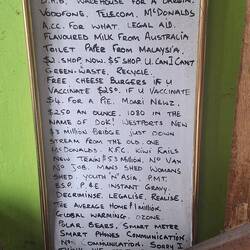 D.H.B. WAREHOUSE FOR A BARGIN.
VODOFONE, TELECOM, MCDONALDS
CC. FOR WHAT LEGAL AID.
FLAVOURED MILK FROM AUSTRALIA
TOILET PAPER FROM MALAYSIA.
$2 SHOP, NOW $5 SHOP U CAN I CAN'T
GREEN WASTE, RECYCLE.
FREE CHEESE BURGERS IF U
VACCINATE $250. IF U VACCINATE
$4. FOR A PIE. MOARI NEWZ.
$250 AN OUNCE. 1080 IN THE
NAME OF DOK! WESTPORTS NEW
$3 MILLION BRIDGE JUST DOWN
STREAM FROM THE OLD ONE
MCDONALDS. KFC. KIWI RAILS
NEW TRAIN $53 MILLION. NO VAN
NO JOB. MANS SHED WOMANS
SHED, YOUTH N ASIA, P.M.T.
E.S.P. P & E. INSTANT GRAVY.
DECRIMINSE. LEGALISE. REALISE.
THE AVERAGE HOME $1 MILLION.
GLOBAL WARMING. OZONE.
POLAR BEARS, SMART METER
SMART PHONES COMMUNICATION
COMMUNICATION. SORRY I